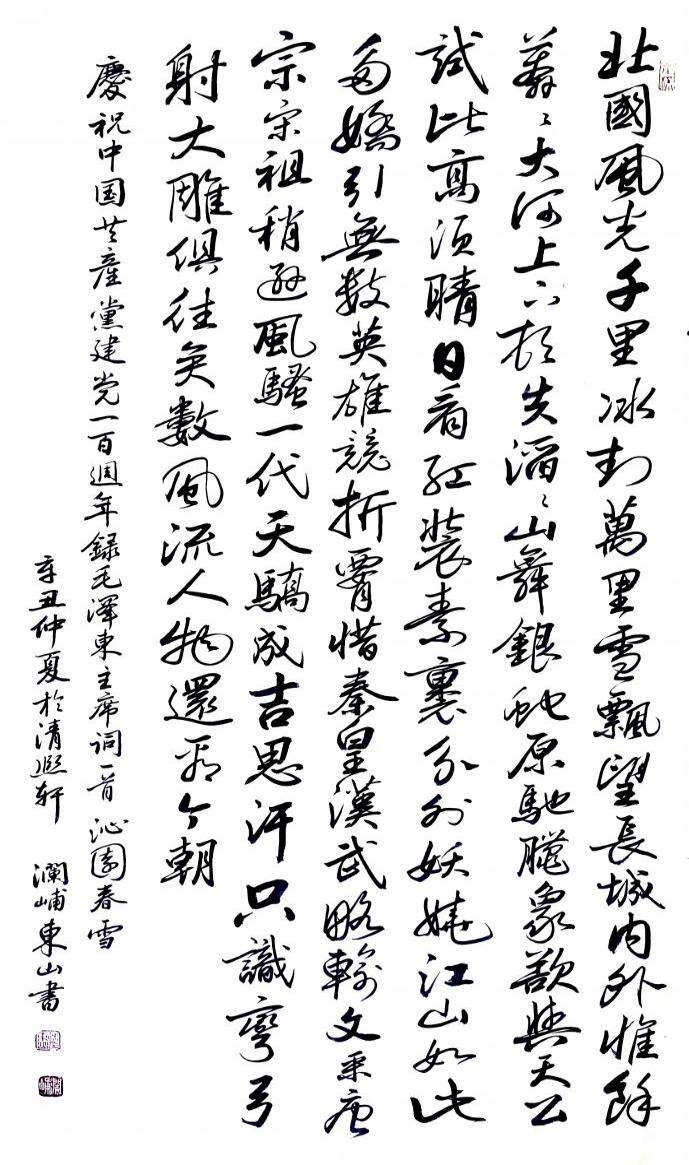 北國風光千里冰封萬里雪飄望長城内外惟餘
莽〻大河上下頓失滔〻山舞銀蛇原馳臘象欲與天公
試比高須晴日看紅裝素裹分外妖嬈江山如此
多嬌引無數英雄競折腰惜秦皇漢武略輸文采唐
宗宋祖稍遜風騷一代天驕成吉思汗只識彎弓
射大雕俱往矣數風流人物還看今朝
慶祝中国共產黨建党一百週年錄毛澤東主席詞一首 沁園春雪
辛丑仲夏於清熙轩 瀾峬東山書